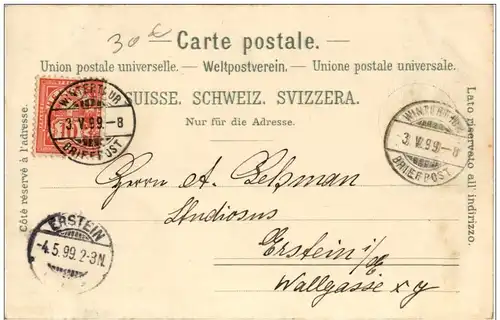 30 €
— Carte postale. —
Union postale universelle. — Weltpostverein. — Unione postale universale.
SUISSE. SCHWEIZ. SVIZZERA.
Nur für die Adresse.
Côté réservé à l'adresse.
Lato riservato all' indirizzo.
WINTERTHUR
-3.V.99.-8
BRIEFPOST
WINTERTHUR
-3.V.99.-8
BRIEFPOST
Herrn A. Lehman
Studiosus
Erstein i/E
Wallgasse
ERSTEIN
-4.5.99.2-3N.